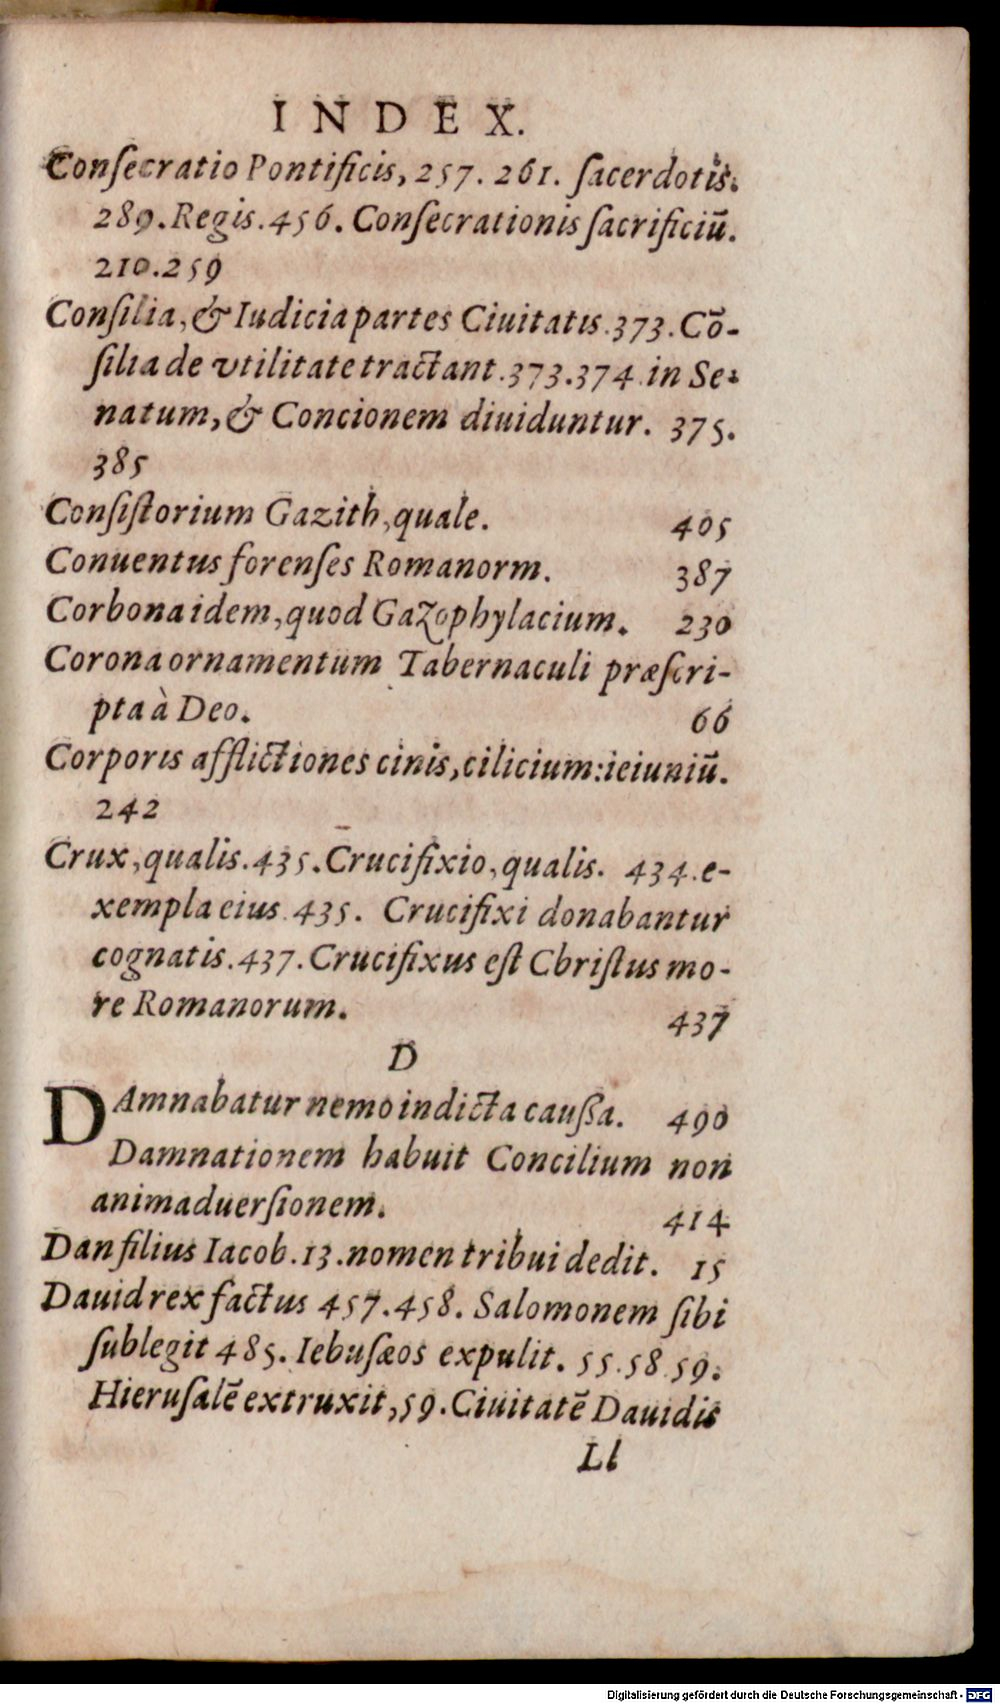 INDEX.
Conſecratio Pontificis, 257. 261. ſacerdotis.
289. Regis. 456. Conſecrationis ſacrificiū.
210. 259
Conſilia, & Iudicia partes Ciuitatis. 373. Cō-
ſilia de vtilitate tractant. 373. 374. in Se-
natum, & Concionem diuiduntur. 375.
385
Conſiſtorium Gazith, quale. 405
Conuentus forenſes Romanorm. 387
Corbona idem, quod Gazophylacium. 230
Corona ornamentum Tabernaculi præſcri-
pta à Deo. 66
Corporis afflictiones cinis, cilicium: ieiuniū.
242
Crux, qualis. 435. Crucifixio, qualis. 434. e-
xempla eius. 435. Crucifixi donabantur
cognatis. 437. Crucifixus eſt Chriſtus mo-
re Romanorum. 437
D
DAmnabatur nemo indicta cauſſa. 490
Damnationem habuit Concilium non
animaduerſionem. 414
Dan filius Iacob. 13. nomen tribui dedit. 15
Dauid rex factus 457. 458. Salomonem ſibi
ſublegit 485. Iebuſæos expulit. 55. 58. 59.
Hieruſalē extruxit, 59. Ciuitatē Dauidis
Ll
Digitalisierung gefördert durch die Deutsche Forschungsgemeinschaft - DFG